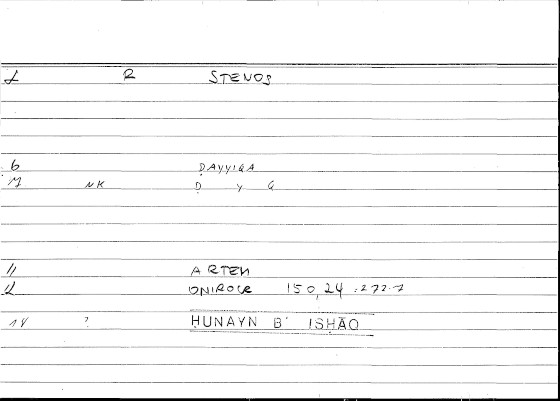 1 R STENOS
6 ḌAYYIQA
7 NK Ḍ Y Q
11 ARTEM
12 ONIROCR 150,24 :272.7
14 ? ḤUNAYN B' ISḤĀQ